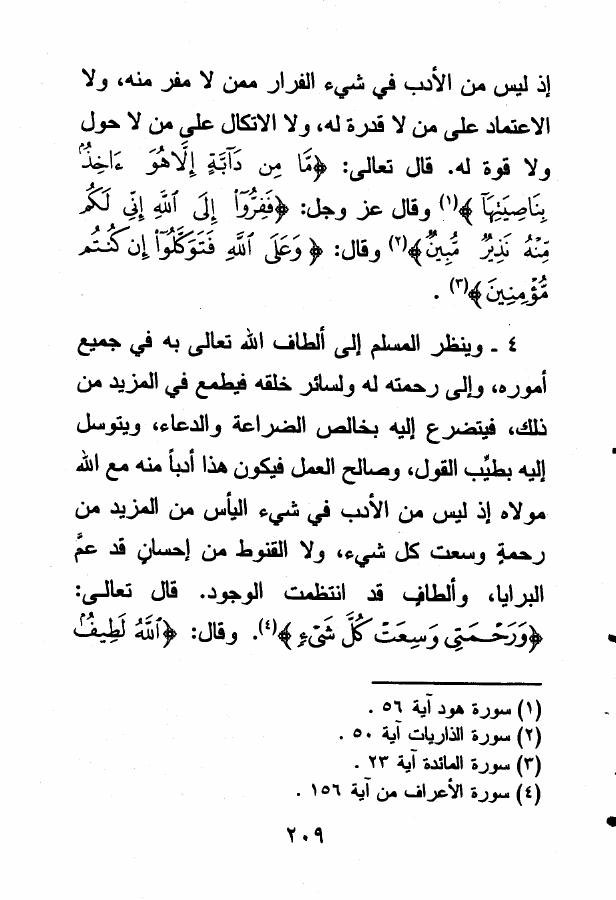 إذ ليس من الأدب في شيء الفرار ممن لا مفر منه، ولا
الاعتماد على من لا قدرة له، ولا الاتكال على من لا حول
ولا قوة له. قال تعالى: ﴿مَّا مِن دَآبَّةٍ إِلَّا هُوَ ءَاخِذٌۢ
بِنَاصِيَتِهَآ﴾(١) وقال عز وجل: ﴿فَفِرُّوٓا۟ إِلَى ٱللَّهِ إِنِّى لَكُم
مِّنْهُ نَذِيرٌ مُّبِينٌ﴾(٢) وقال: ﴿وَعَلَى ٱللَّهِ فَتَوَكَّلُوٓا۟ إِن كُنتُم
مُّؤْمِنِينَ﴾(٣) .
٤ ـ وينظر المسلم إلى ألطاف الله تعالى به في جميع
أموره، وإلى رحمته له ولسائر خلقه فيطمع في المزيد من
ذلك، فيتضرع إليه بخالص الضراعة والدعاء، ويتوسل
إليه بطيِّب القول، وصالح العمل فيكون هذا أدباً منه مع الله
مولاه إذ ليس من الأدب في شيء اليأس من المزيد من
رحمةٍ وسعت كل شيء، ولا القنوط من إحسانٍ قد عمَّ
البرايا، وألطافٍ قد انتظمت الوجود. قال تعالـى:
﴿وَرَحْمَتِى وَسِعَتْ كُلَّ شَىْءٍ﴾(٤). وقال: ﴿ٱللَّهُ لَطِيفٌۢ
(١) سورة هود آية ٥٦ .
(٢) سورة الذاريات آية ٥٠ .
(٣) سورة المائدة آية ٢٣ .
(٤) سورة الأعراف من آية ١٥٦ .
٢٠٩